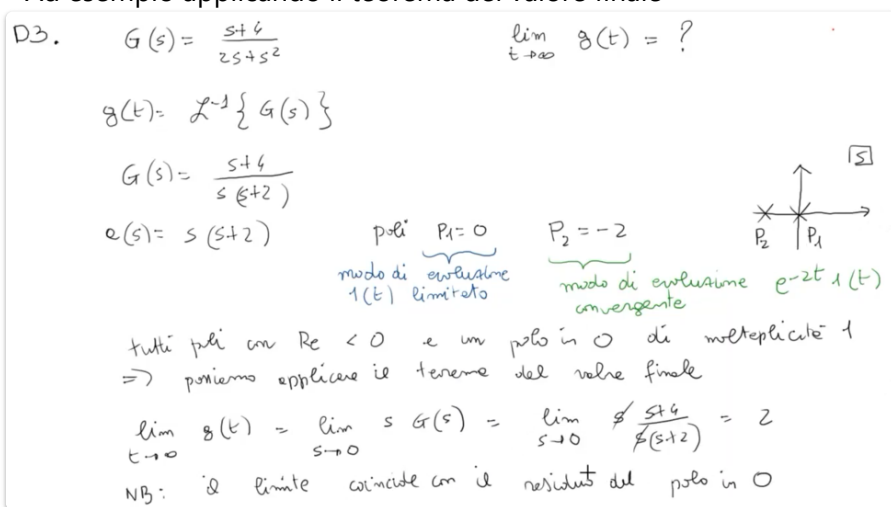 Ad esempio applicando il teorema del valore finale
D3. G(s) = s+4 / 2s+s² lim t→∞ g(t) = ?
g(t) = ℒ⁻¹{G(s)}
G(s) = s+4 / s(s+2)
S
e(s) = s(s+2) poli P1 = 0 P2 = -2
P2 P1
modo di evoluzione 1(t) limitato
modo di evoluzione e^-2t 1(t) convergente
tutti poli con Re < 0 e un polo in 0 di molteplicità 1
=> possiamo applicare il teorema del valore finale
lim t→0 g(t) = lim s→0 s G(s) = lim s→0 s s+4 / s(s+2) = 2
NB: il limite coincide con il residuo del polo in 0